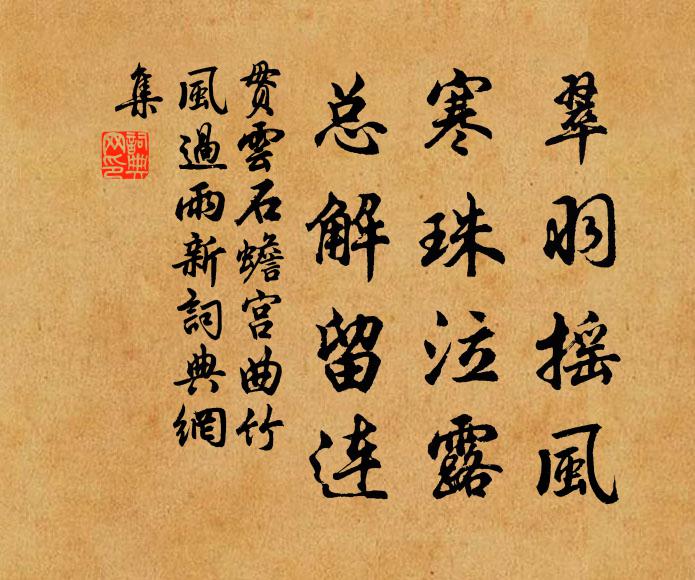 翠羽摇風
寒珠泣露
总解留连
贯雲石蟾宫曲竹
風過雨新詞典網
集
詞典
网印